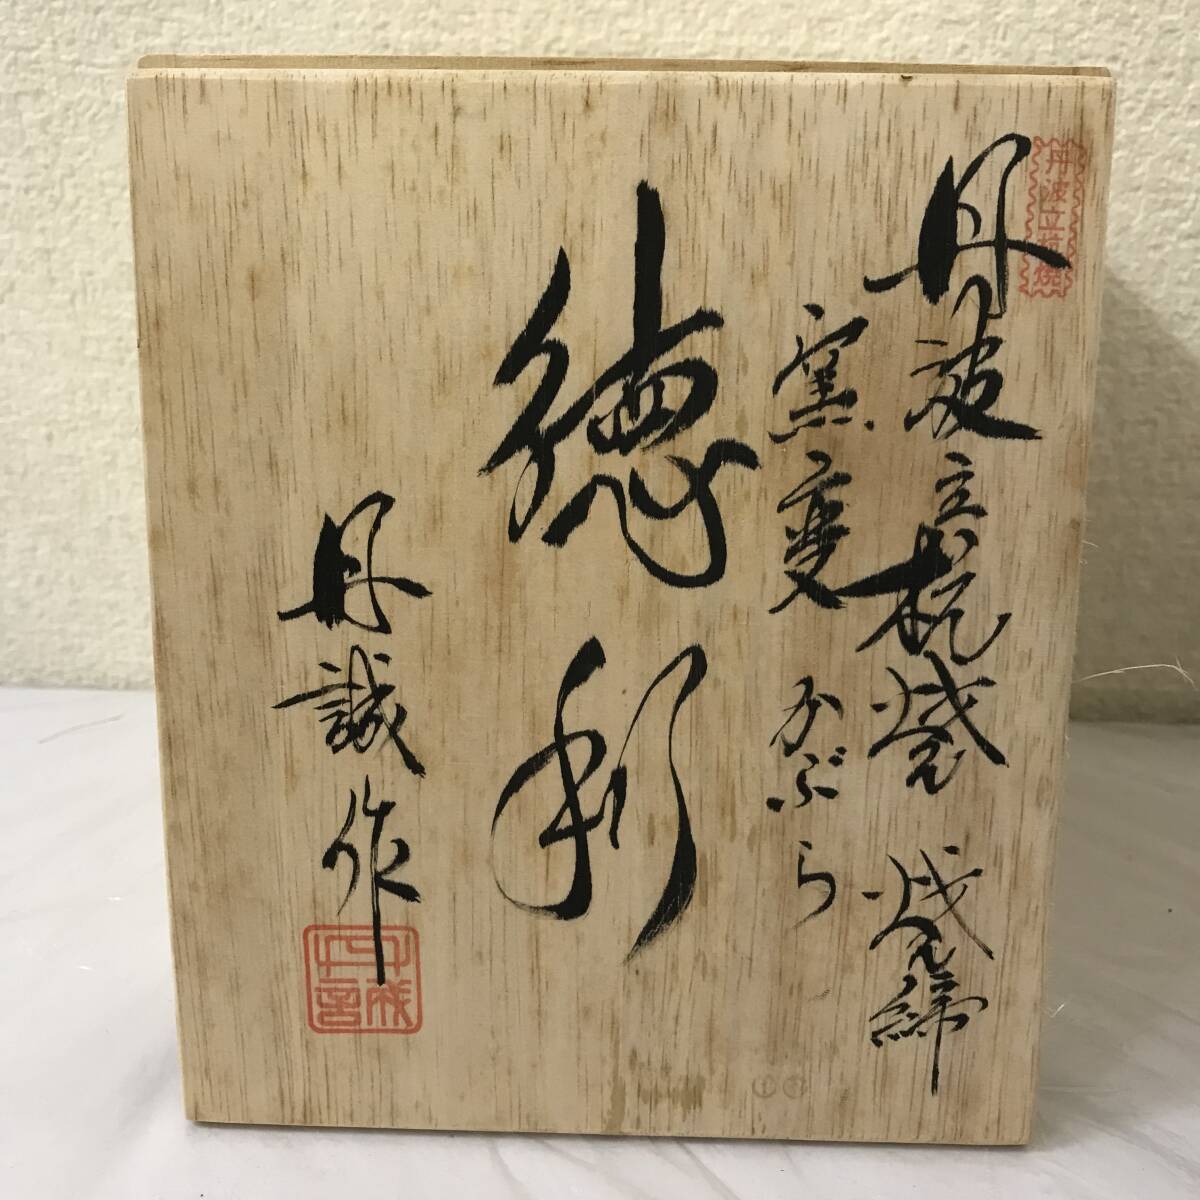 丹波立杭焼
丹波立杭焼 焼締
窯変 かぶら
徳利
丹誠作
丹誠